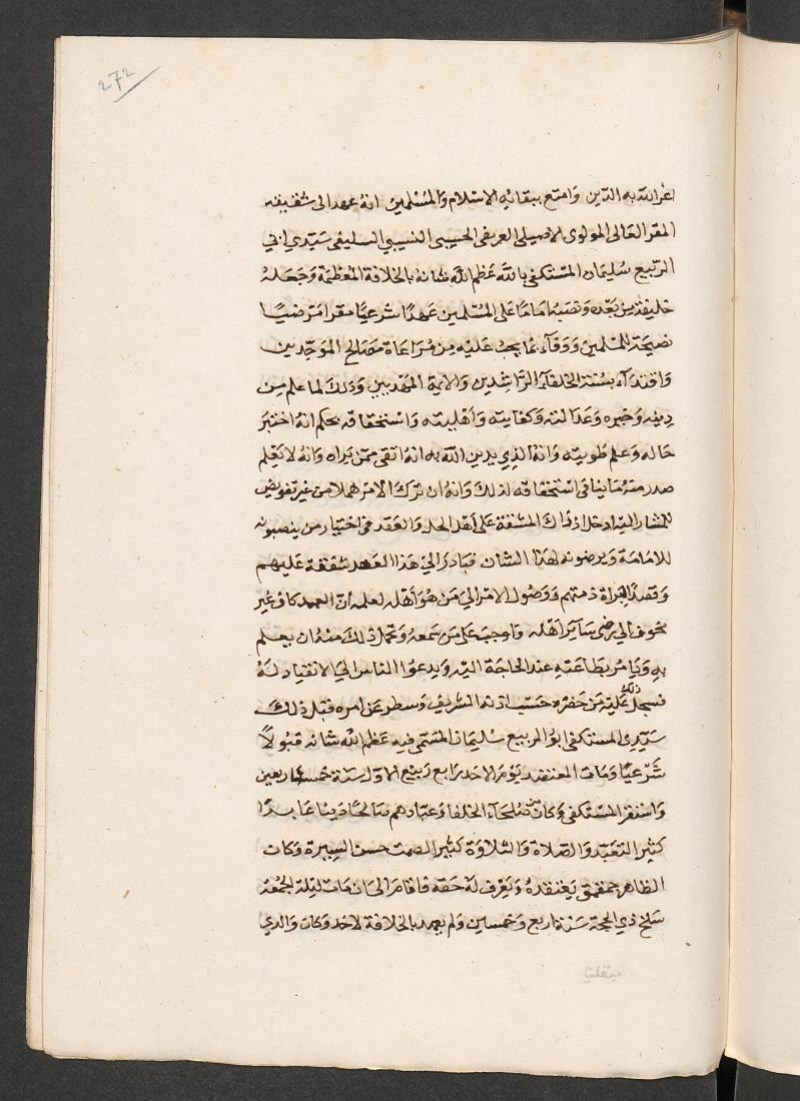 272
اعز الله به الدين وامتع ببقائه الاسلام والمسلمين انه عهد الى شقيقه
المقر العالى المولوى الاصيلى العريقى الحسيبى النسيبى السليفى سيدي ابي
الربيع سليمان المستكفى بالله عظم الله شانه بالخلافة المعظمة وجعله
خليفة من بعده ونصبه اماما على المسلمين عهدا شرعيا مقرا مرضيا
نصيحة للمسلمين ووفاء بما يجب عليه من مراعاة مصالح الموحدين
واقتداء بسنة الخلفاء الراشدين والايمة المهديين وذلك لما علم من
دينه وخيره وعدالته وكفايته واهليته واستحقاقه بحكم انه اختبر
حاله وعلم طويته وانه الذي يدين الله به انه اتقى ممن يراه وانه لا يعلم
صدر منه ما ينافى استحقاقه لذلك وانه ان ترك الامر هملا من غير تفويض
للمشار اليه ادخل اذ ذاك المشقة على اهل الحل والعقد فى اختيار من ينصبونه
للامامة ويرضونه لهذا الشان فبادر الى هذا العهد شفقة عليهم
وقصدا لبراة ذمتهم ووصول الامر الى من هو اهله لعلمه ان العهد كان غير
محوج الى رضى سائر اهله وواجب على من سمعه وتحمل ذلك منه ان يعلم
به ويامر بطاعته عند الحاجة اليه ويدعوا الناس الى الانقياد له
فسجل ذلك عليه من حضره حسب اذنه الشريف وسطر عن امره فقبل ذلك
سيدى المستكفى ابو الربيع سليمان المسمى فيه عظم الله شانه قبولا
شرعيا ومات المعتضد يوم الاحد رابع ربيع الاول سنة خمس واربعين
واستقر المستكفى وكان من صلحاء الخلفا وعبادهم صالحا دينا عابدا
كثير التعبد والصلاة والتلاوة كثير الصمت حسن السيرة وكان
الظاهر جمقمق يعتقده ويعرف له حقه فاقام الى ان مات ليلة الجمعة
سلخ ذي الحجة سنة اربع وخمسين ولم يعهد بالخلافة لاحد وكان والدي